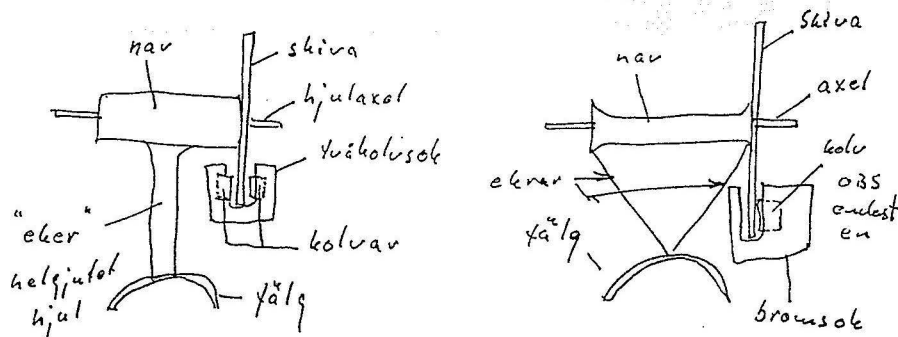 nav
skiva
hjulaxel
tvåkolvsok
kolvar
"eker"
helgjutet
hjul
fälg
skiva
nav
axel
kolv
OBS
endast
en
ekrar
fälg
bromsok